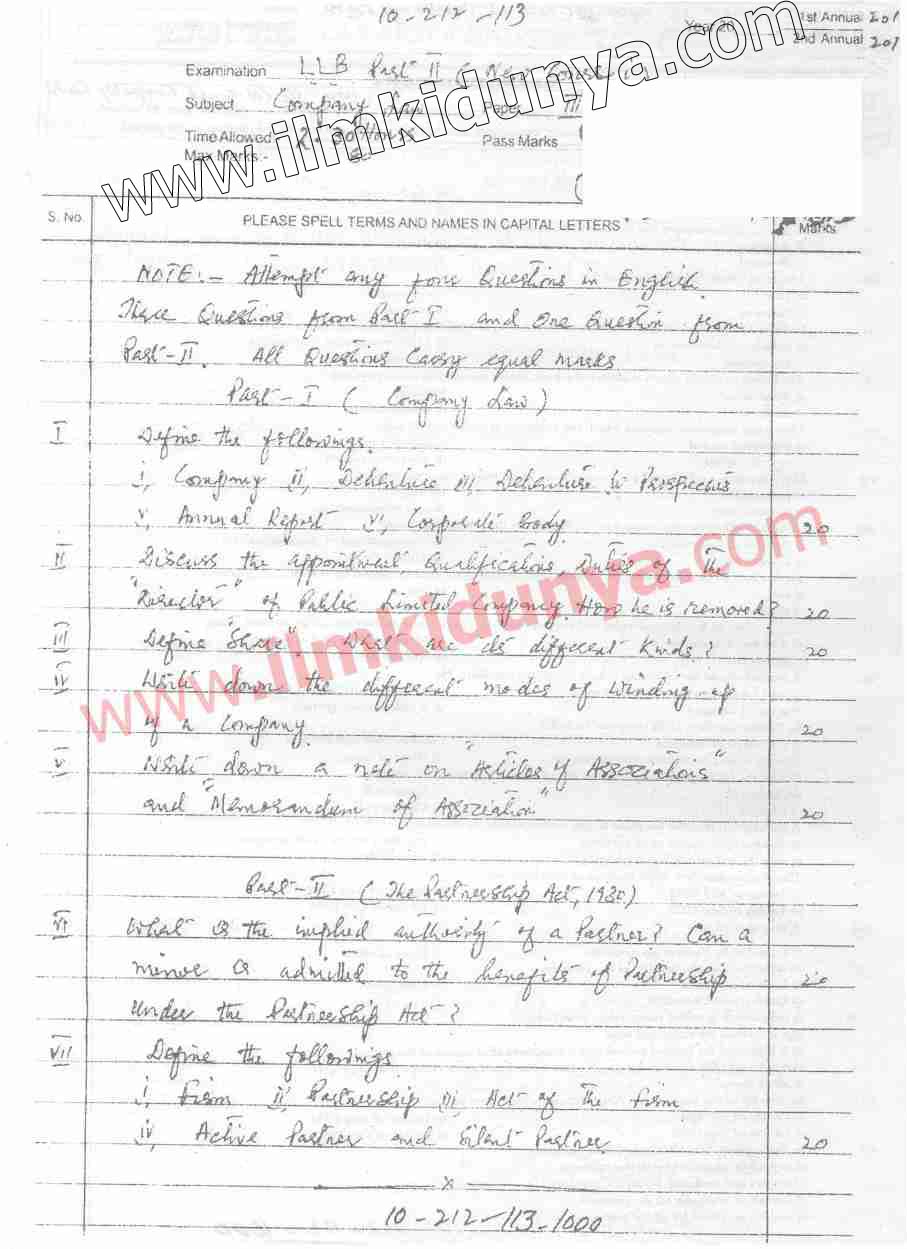 10-212-113
Year 20
1st Annual 201
2nd Annual 201
Examination LLB Part II (New Course)
Subject Company Law Paper III
Time Allowed 2:30 Hours Pass Marks
Max Marks:-
www.ilmkidunya.com
S. No. PLEASE SPELL TERMS AND NAMES IN CAPITAL LETTERS Marks
NOTE:- Attempt any four Questions in English.
Three Questions from Part-I and One Question from
Part-II. All Questions Carry equal marks
Part-I (Company Law)
I Define the followings.
i, Company ii, Debenture iii, Debenture iv Prospectus
v, Annual Report vi, Corporate body. 20
II Discuss the appointment, Qualifications, Duties of the
"Director" of Public Limited Company. How he is removed? 20
III Define "Share". What are its different Kinds? 20
IV Write down the different modes of winding-up
of a Company. 20
www.ilmkidunya.com
V Write down a note on "Articles of Associations"
and "Memorandum of Association" 20
Part-II (The Partnership Act, 1930)
VI What is the implied authority of a Partner? Can a
minor is admitted to the benefits of Partnership 20
under the Partnership Act?
VII Define the followings
i, Firm ii, Partnership iii, Act of the firm
iv, Active Partner and Silent Partner. 20
x
10-212-113-1000